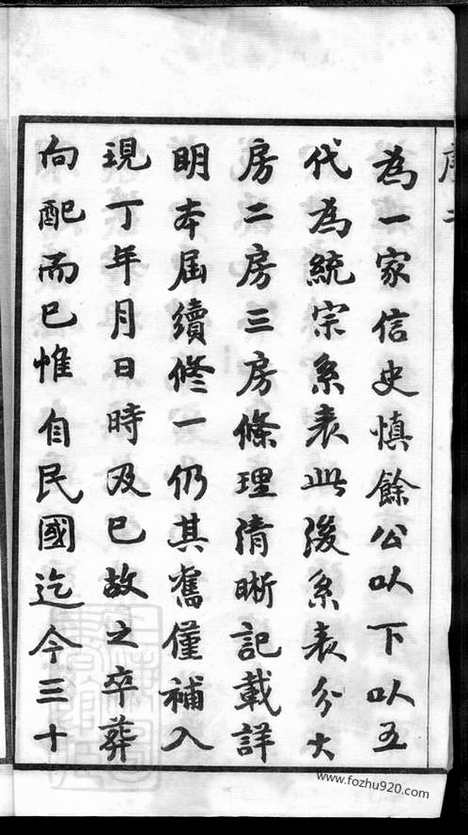 序二
為一家信史慎餘公以下以五
代為統宗系表此後系表分大
房二房三房條理清晰記載詳
明本屆續修一仍其舊僅補入
現丁年月日時及已故之卒葬
向配而已惟自民國迄今三十
www.fozhu920.com